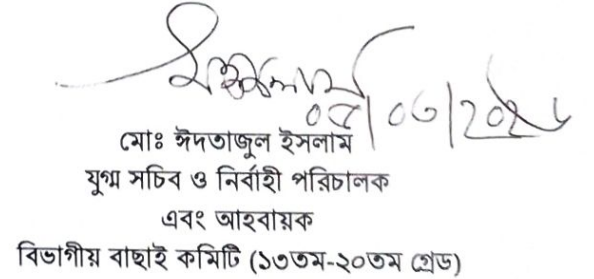 মোঃ ঈদতাজুল ইসলাম
যুগ্ম সচিব ও নির্বাহী পরিচালক
এবং আহবায়ক
বিভাগীয় বাছাই কমিটি (১৩তম-২০তম গ্রেড)